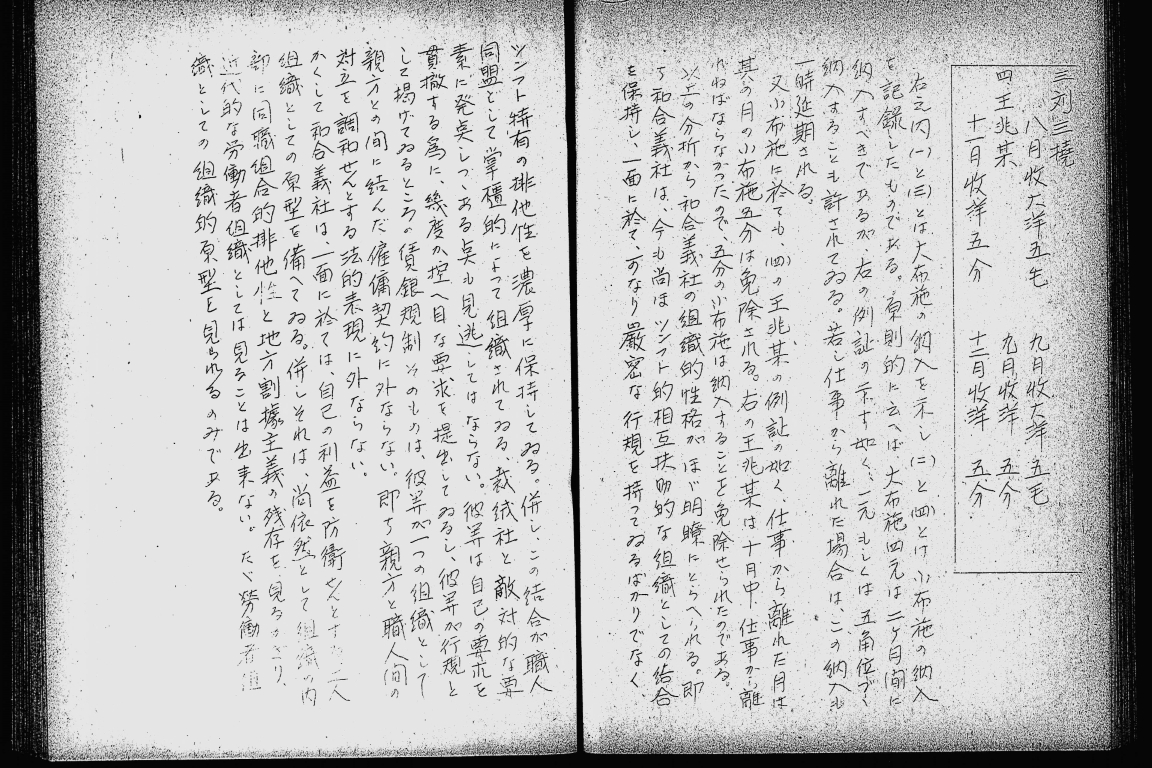 三 刘三撓
八月收大洋五毛 九月收大洋 五毛
四 王兆某 九月收洋 五分
十一月收洋五分 十二月收洋 五分
右之内(一)と(三)とは大布施の納入を示し(二)と(四)とは小布施の納入
を記録したものである。原則的に云へば、大布施四元は二ヶ月間に
納入すべきであるが右の例証の示す如く、一元もしくは五角位づく
納入することも許されてゐる。若し仕事から離れた場合は、この納入も
一時延期される。
又小布施に於ても、(四)の王兆某の例証の如く、仕事から離れた月は
其の月の小布施五分は免除される。右の王兆某は十月中仕事から離
れねばならなかったので、五分の小布施は納入することを免除せられたのである。
以上の分析から和合義社の組織的性格がほゞ明瞭にとらへられる。即
ち和合義社は、今も尚ほツンフト的相互扶助的な組織としての結合
を保持し、一面に於て、可なり厳密な行規を持ってゐるばかりでなく
ツンフト特有の排他性を濃厚に保持してゐる。併し、この結合が職人
同盟として掌櫃的によって組織されてゐる、裁絨社と敵対的な要
素に発展しつゝある点も見逃してはならない。彼等は自己の要求を
貫撤する為に、幾度か控へ目な要求を提出してゐるし、彼等が行規と
して掲げてゐるところの賃銀規制そのものは、彼等が一つの組織として
親方との間に結んだ雇傭契約に外ならない。即ち親方と職人間の
対立を調和せんとする法的表現に外ならない。
かくして和合義社は、一面に於ては、自己の利益を防衛せんとする
組織としての原型を備へてゐる。併しそれは、尚依然として組織の内
部に同職組合的排他性と地方割據主義の残存を見るかぎり、
近代的な労働者組織としては見ることは出来ない。たゞ労働者組
織としての組織的原型を見られるのみである。